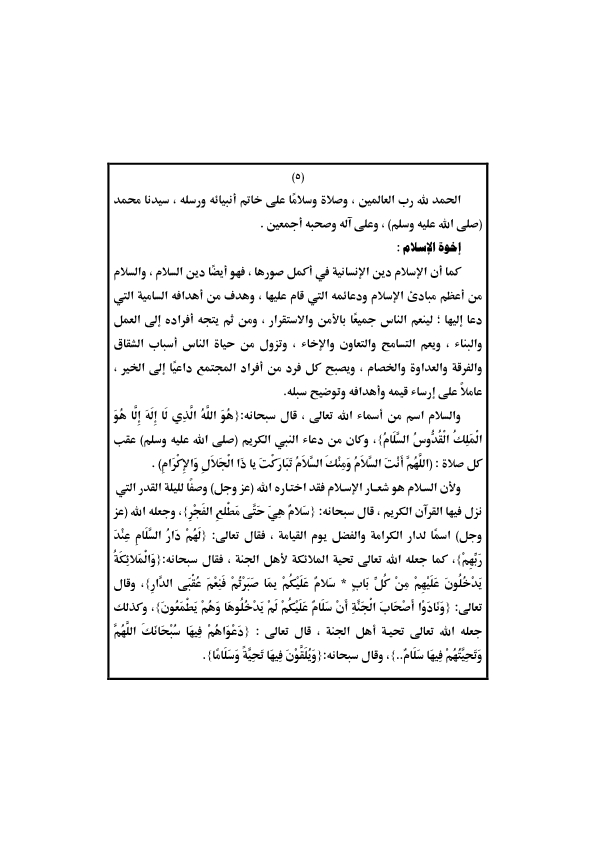 (٥)
الحمد لله رب العالمين ، وصلاة وسلامًا على خاتم أنبيائه ورسله ، سيدنا محمد
(صلى الله عليه وسلم) ، وعلى آله وصحبه أجمعين .
إخوة الإسلام :
كما أن الإسلام دين الإنسانية في أكمل صورها ، فهو أيضًا دين السلام ، والسلام
من أعظم مبادئ الإسلام ودعائمه التي قام عليها ، وهدف من أهدافه السامية التي
دعا إليها ؛ لينعم الناس جميعًا بالأمن والاستقرار ، ومن ثم يتجه أفراده إلى العمل
والبناء ، ويعم التسامح والتعاون والإخاء ، وتزول من حياة الناس أسباب الشقاق
والفرقة والعداوة والخصام ، ويصبح كل فرد من أفراد المجتمع داعيًا إلى الخير ،
عاملاً على إرساء قيمه وأهدافه وتوضيح سبله.
والسلام اسم من أسماء الله تعالى ، قال سبحانه:{هُوَ اللَّهُ الَّذِي لَا إِلَهَ إِلَّا هُوَ
الْمَلِكُ الْقُدُّوسُ السَّلَامُ}، وكان من دعاء النبي الكريم (صلى الله عليه وسلم) عقب
كل صلاة : (اللَّهُمَّ أَنْتَ السَّلَامُ وَمِنْكَ السَّلَامُ تَبَارَكْتَ يا ذَا الْجَلَالِ وَالإِكْرَامِ) .
ولأن السلام هو شعار الإسلام فقد اختاره الله (عز وجل) وصفًا لليلة القدر التي
نزل فيها القرآن الكريم ، قال سبحانه: {سَلَامٌ هِيَ حَتَّى مَطْلَعِ الْفَجْرِ}، وجعله الله (عز
وجل) اسمًا لدار الكرامة والفضل يوم القيامة ، فقال تعالى: {لَهُمْ دَارُ السَّلَامِ عِنْدَ
رَبِّهِمْ}، كما جعله الله تعالى تحية الملائكة لأهل الجنة ، فقال سبحانه:{وَالْمَلَائِكَةُ
يَدْخُلُونَ عَلَيْهِمْ مِنْ كُلِّ بَابٍ * سَلَامٌ عَلَيْكُمْ بِمَا صَبَرْتُمْ فَنِعْمَ عُقْبَى الدَّارِ}، وقال
تعالى: {وَنَادَوْا أَصْحَابَ الْجَنَّةِ أَنْ سَلَامٌ عَلَيْكُمْ لَمْ يَدْخُلُوهَا وَهُمْ يَطْمَعُونَ}، وكذلك
جعله الله تعالى تحية أهل الجنة ، قال تعالى : {دَعْوَاهُمْ فِيهَا سُبْحَانَكَ اللَّهُمَّ
وَتَحِيَّتُهُمْ فِيهَا سَلَامٌ..}، وقال سبحانه:{وَيُلَقَّوْنَ فِيهَا تَحِيَّةً وَسَلَامًا}.